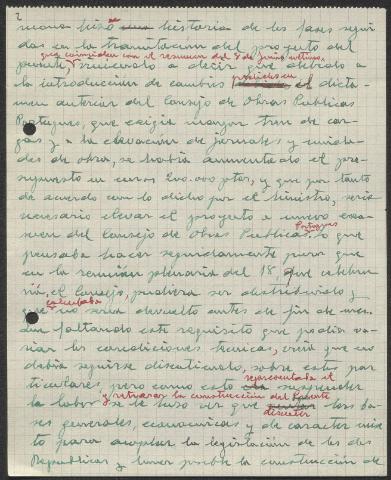 2
mismo hizo historia de las fases segui
das en la tramitación del proyecto del
que coinciden con el resumen del 8 de Junio ultimo,
puente, viniendo a decir que debido a
la introducción de cambios pedidos en el dicta-
men anterior del Consejo de Obras Publicas
Portugues, que exigia mayor tren de car-
gas y a la elevación de jornales y unida-
des de obra, se habia aumentado el pre-
supuesto en unos 200.000 ptas, y que por tanto
de acuerdo con lo dicho por el Ministro, seria
necesario elevar el proyecto a nuevo exa-
men del Consejo de Obras Publicas Portugues, lo que
pensaba hacer seguidamente para que
en la reunión plenaria del 18, que celebra
ria, el Consejo, pudiera ser distribuido y
calculaba
que no seria devuelto antes de fin de mes.
Aun faltando este requisito que podia va-
riar las condiciones tecnicas, creia que no
debia seguirse discutiendo, sobre estos par
ticulares, pero como esto representaba el suspender
la labor y retrasar la construcción del Puente
se le hizo ver que discutir las ba-
ses generales, economicas y de caracter mix-
to para acoplar la legislación de las dos
Republicas y hacer posible la construcción de